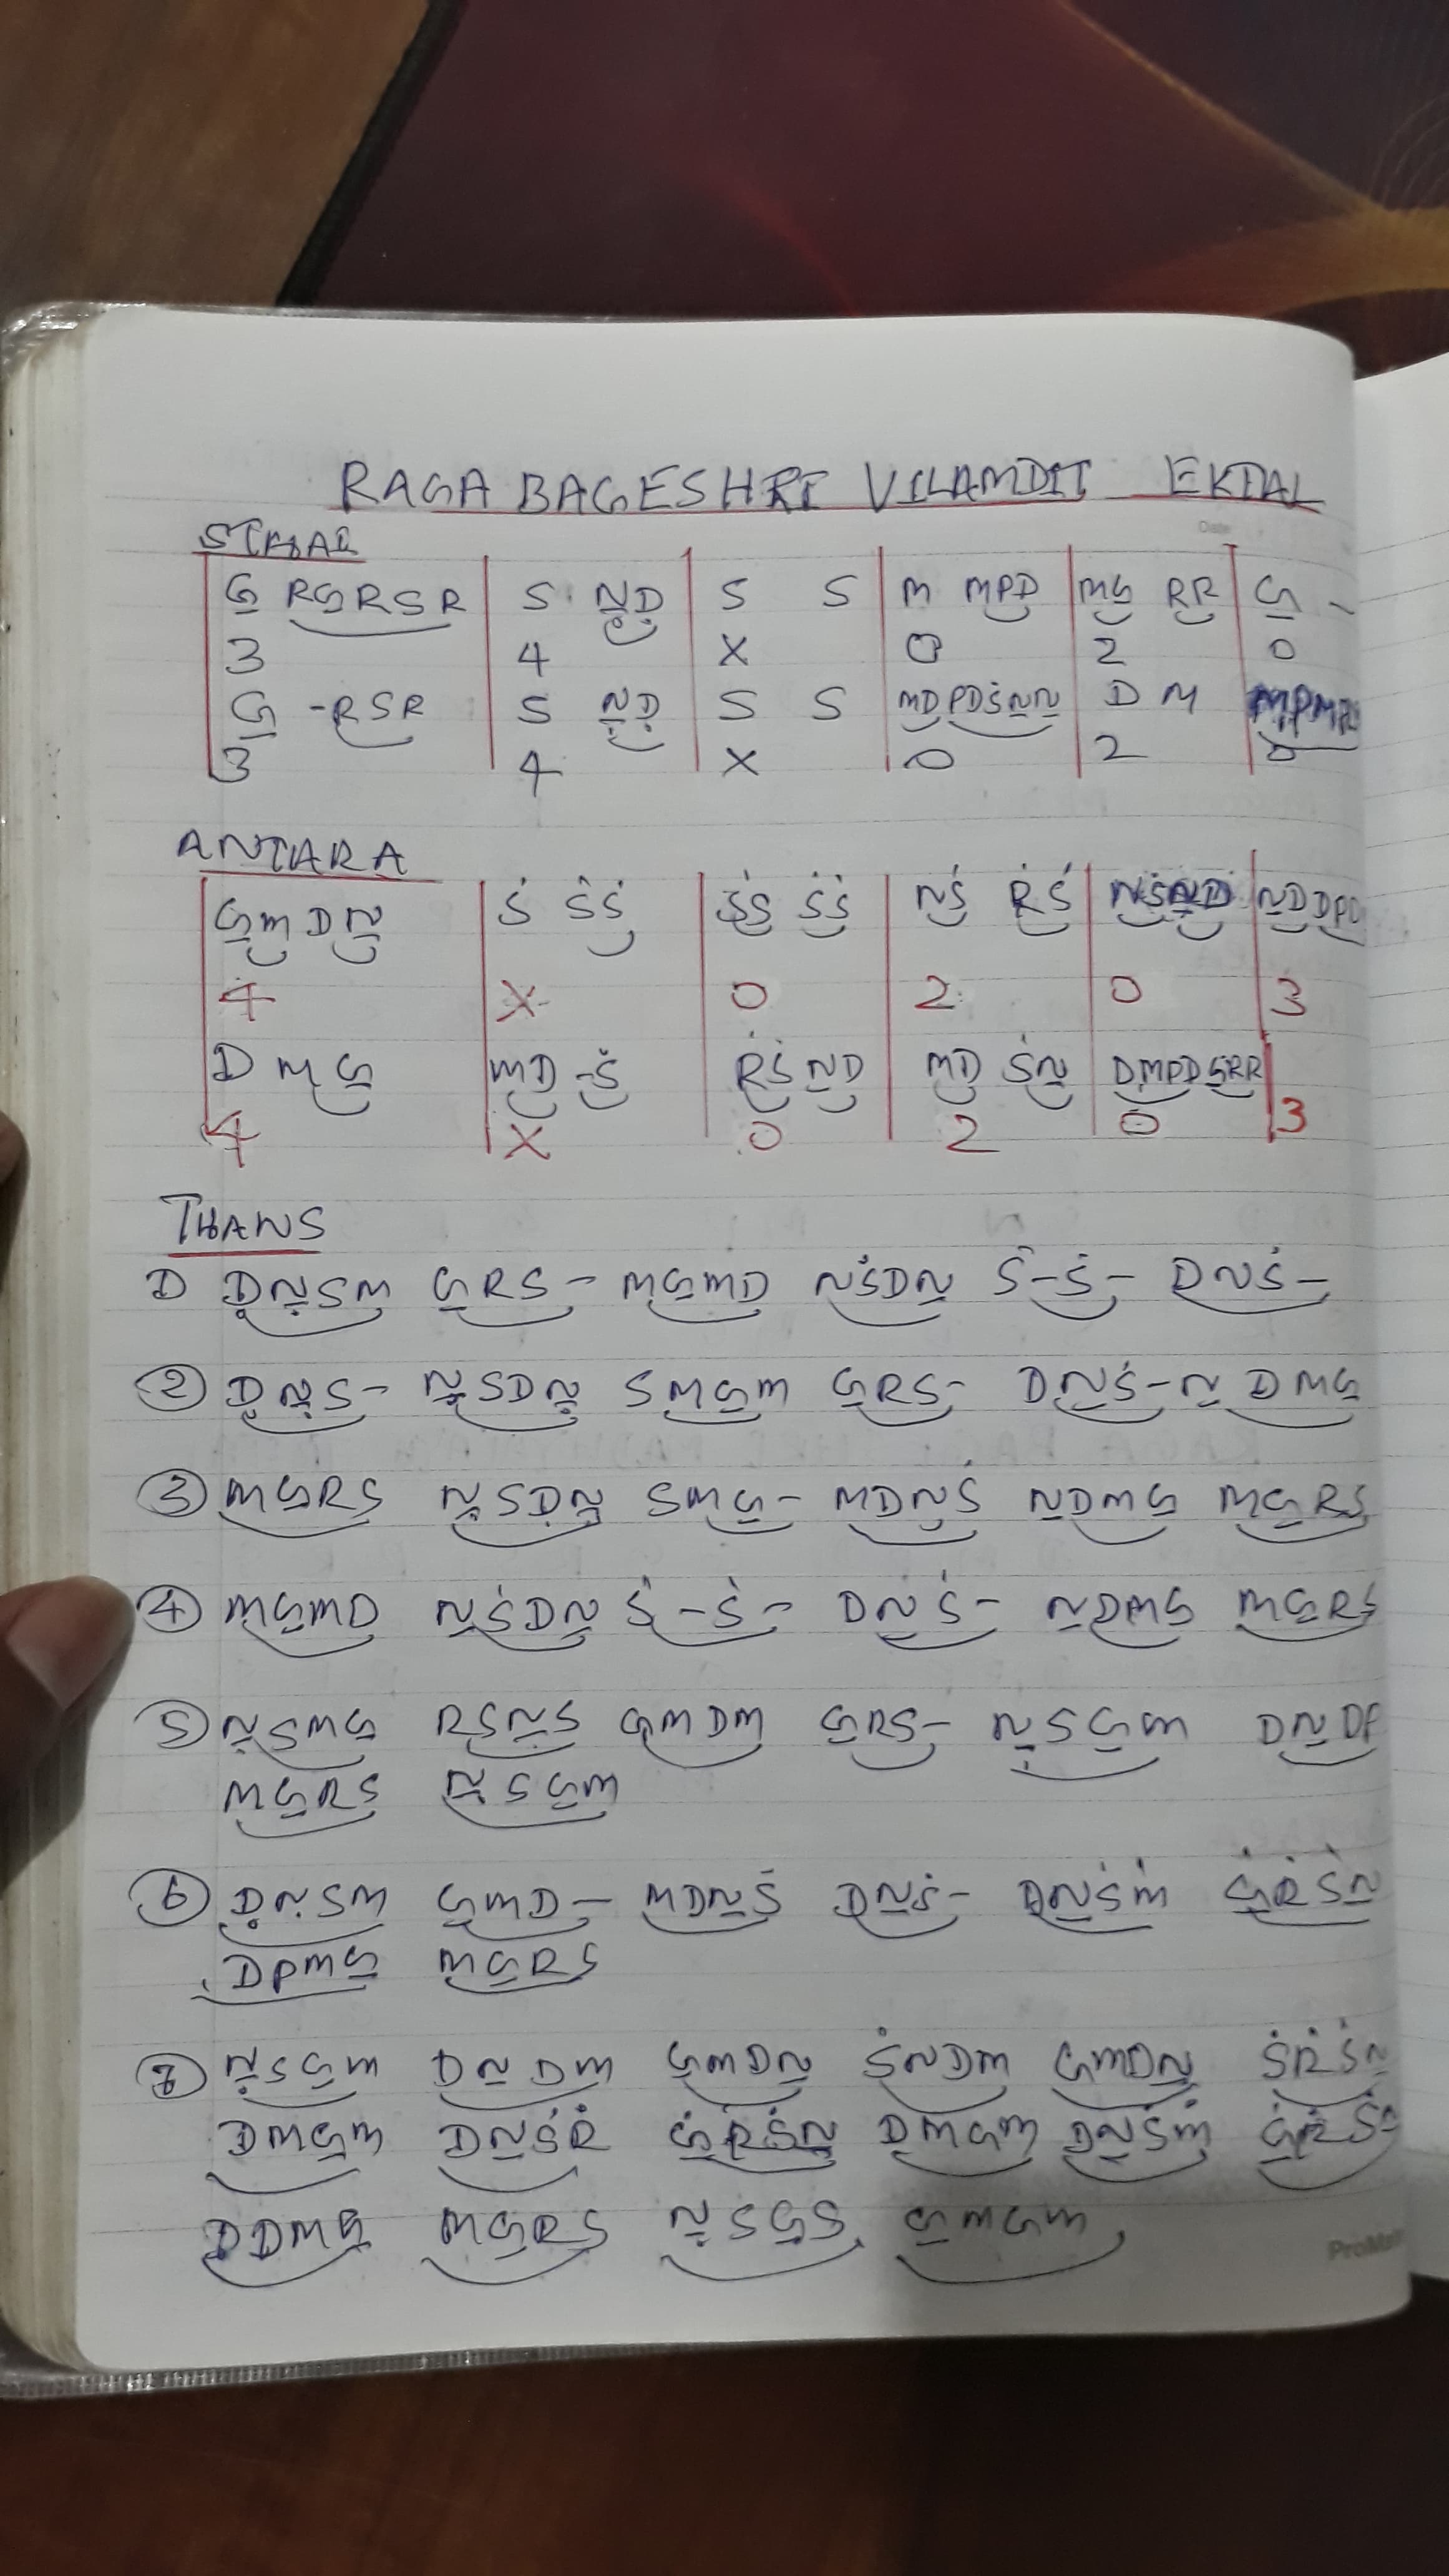 RAGA BAGESHRI VILAMDIT EKTAL
Date
STHAAI
G̲ RG̲RSR | S Ṇ̲Ḍ | S S | M MPD | MG̲ RR | G̲ -
3 4 X 0 2 0
G̲ -RSR | S Ṇ̲Ḍ | S S | MDPDṠN̲N̲ | D M |
3 4 X 0 2 0
ANTARA
G̲M DN̲ | Ṡ ṠṠ | ṠṠ ṠṠ | N̲Ṡ ṘṠ | N̲ṠN̲D | N̲DDPD
4 X 0 2 0 3
D MG̲ | MD -Ṡ | ṘṠ N̲D | MD ṠN̲ | DMPDG̲RR |
4 X 0 2 0 3
THANS
1) ḌṆ̲SM G̲RS- MG̲MD N̲ṠDN̲ Ṡ-Ṡ- DN̲Ṡ-
2) ḌṆ̲S- Ṇ̲SDṆ̲ SMG̲M G̲RS- DN̲Ṡ- N̲DMG̲
3) MG̲RS Ṇ̲SḌṆ̲ SMG̲- MDN̲Ṡ N̲DMG̲ MG̲RS
4) MG̲MD N̲ṠDN̲ Ṡ-Ṡ- DN̲Ṡ- N̲DMG̲ MG̲RS
5) Ṇ̲SMG̲ RSṆ̲S G̲MDM G̲RS- Ṇ̲SG̲M DN̲DP
MG̲RS Ṇ̲SG̲M
6) ḌṆ̲SM G̲MD- MDN̲Ṡ DN̲Ṡ- DN̲ṠṀ Ġ̲ṘṠN̲
DPMG̲ MG̲RS
7) Ṇ̲SG̲M DN̲DM G̲MDN̲ ṠN̲DM G̲MDN̲ ṠṘṠN̲
DMG̲M DN̲ṠṘ Ġ̲ṘṠN̲ DMG̲M DN̲ṠṀ
DDMG̲ MG̲RS Ṇ̲SG̲S G̲MG̲M